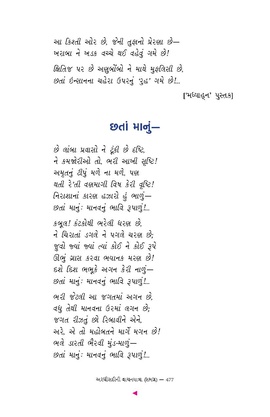 આ કિસ્તી ઓર છે, જેની તુફાનો પ્રેરણા છે—
ખરાબા ને ખડક વચ્ચે થઈ વહેવું ગમે છે!
ક્ષિતિજ પર છે અણુબૉંબો ને માથે મુફલિસી છે,
છતાં ઇન્સાનના ચહેરા ઉપરનું 'નૂર' ગમે છે!..
['મધ્યાહ્ન' પુસ્તક]
છતાં માનું—
છે લાંબા પ્રવાસો ને ટૂંકી છે દૃષ્ટિ,
ને કમજોરીઓ તો, ભરી આખી સૃષ્ટિ!
અમૃતનું ટીપું મળે ના મળે, પણ
થતી રે'તી વણમાગી વિષ કેરી વૃષ્ટિ!
નિરાશાનાં કારણ હજારો હું ભાળું—
છતાં માનું: માનવનું ભાવિ રૂપાળું!..
કબૂલ! કંટકોથી ભરેલી ધરણ છે,
ને ઘિરાતાં ડગલે ને પગલે ચરણ છે;
જુવો જ્યાં જ્યાં ત્યાં કોઈ ને કોઈ રૂપે
ઊભું ગ્રાસ કરવા ભયાનક મરણ છે!
દશે દિશ ભભૂકે અગન કેરી નાળું—
છતાં માનું: માનવનું ભાવિ રૂપાળું!..
ભરી જેટલી આ જગતમાં અગન છે,
વધુ તેથી માનવના ઉરમાં લગન છે;
જગત રીઝતું છો રિબાવીને એને,
અરે, એ તો મહોબતને માર્ગે મગન છે!
ભલે ડારતી ભૈરવી મુંડ-માળું—
છતાં માનું: માનવનું ભાવિ રૂપાળું!..
અરધીસદીની વાચનયાત્રા — 477